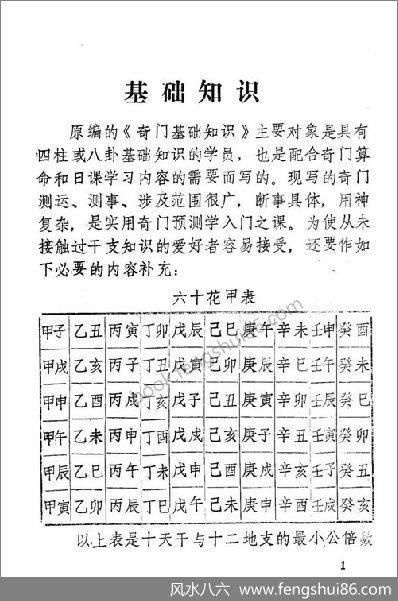 基础知识
原编的《奇门基础知识》主要对象是具有
四柱或八卦基础知识的学员，也是配合奇门算
命和日课学习内容的需要而写的。现写的奇门
测运、测事、涉及范围很广，断事具体，用神
复杂，是实用奇门预测学入门之课。为使从未
接触过干支知识的爱好者容易接受，还要作如
下必要的内容补充：
六十花甲表
甲子 乙丑 丙寅 丁卯 戊辰 己巳 庚午 辛未 壬申 癸酉
甲戌 乙亥 丙子 丁丑 戊寅 己卯 庚辰 辛巳 壬午 癸未
甲申 乙酉 丙戌 丁亥 戊子 己丑 庚寅 辛卯 壬辰 癸巳
甲午 乙未 丙申 丁酉 戊戌 己亥 庚子 辛丑 壬寅 癸卯
甲辰 乙巳 丙午 丁未 戊申 己酉 庚戌 辛亥 壬子 癸丑
甲寅 乙卯 丙辰 丁巳 戊午 己未 庚申 辛酉 壬戌 癸亥
book.fengshui86.com
以上表是十天干与十二地支的最小公倍数
1
风水八六－www.fengshui86.com